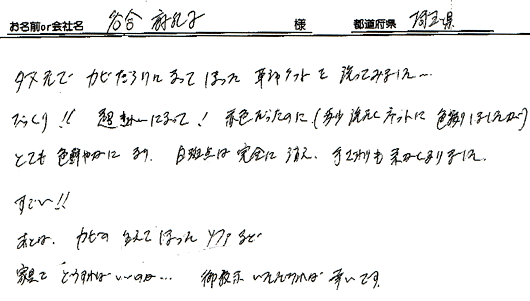 お名前or会社名 谷合 様 都道府県 埼玉県
ダメ元で カビだらけになってしまった 革ジャケットを 洗ってみました〜
びっくり!! 超きれいになって! 茶色だったのに(多少洗たくネットに 色移りしましたが)
とても 色鮮やかに なり、白斑点は 完全に 消え、手ざわりも 柔かくなりました。
すごい!!
あとは、カビの生えてしまった ソファなど
家具で どうすればいいのか… 御教示いただければ 幸いです。